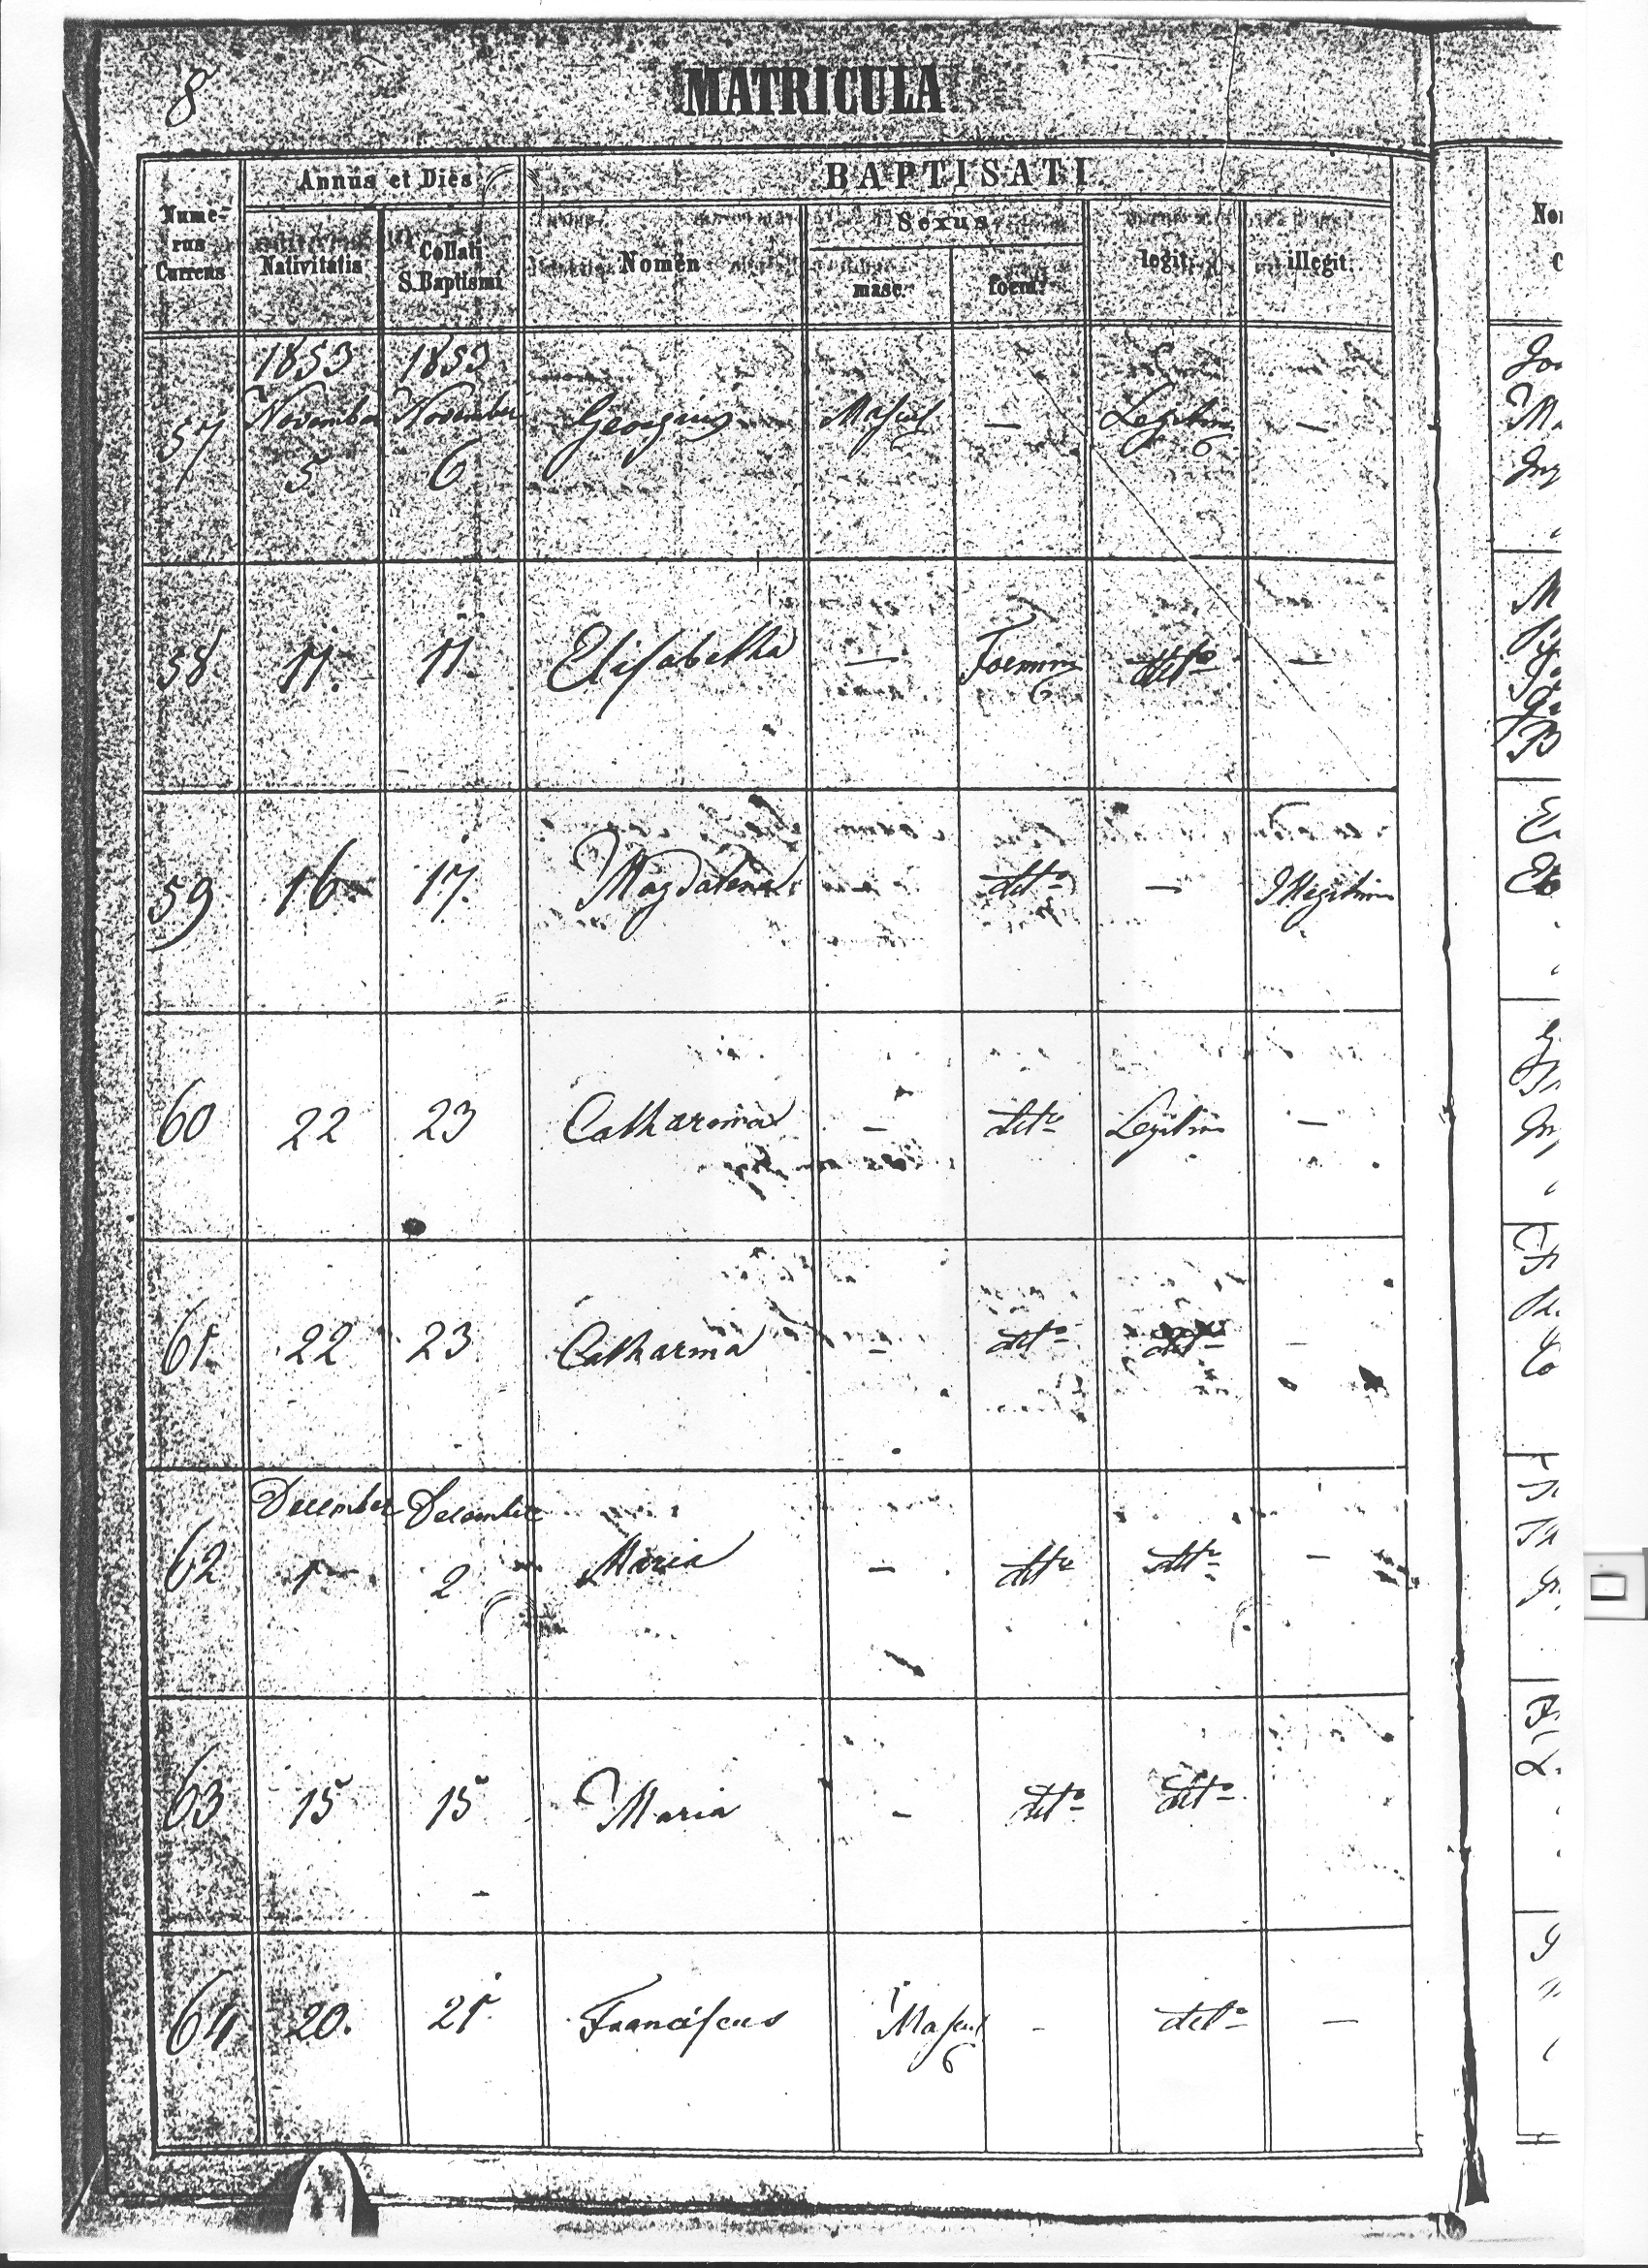 8
MATRICULA
Annus et Dies
BAPTISATI
Nume-
rus
Currens
Nativitatis
Collati
S. Baptismi
Nomen
Sexus
masc.
foem.
legit.
illegit.
1853 1853
57 November November Georgius Mascul — Legitim —
5 6
58 11. 11. Elisabetha — Foemin dtto —
59 16 17. Magdalena dtto — Illegitim
60 22 23 Catharina — dtto Legitim —
61. 22 23 Catharina — dtto dtto —
December December
62 1 2 Maria — dtto dtto —
63 15 15 Maria — dtto dtto
64 20. 21. Franciscus Mascul — dtto —